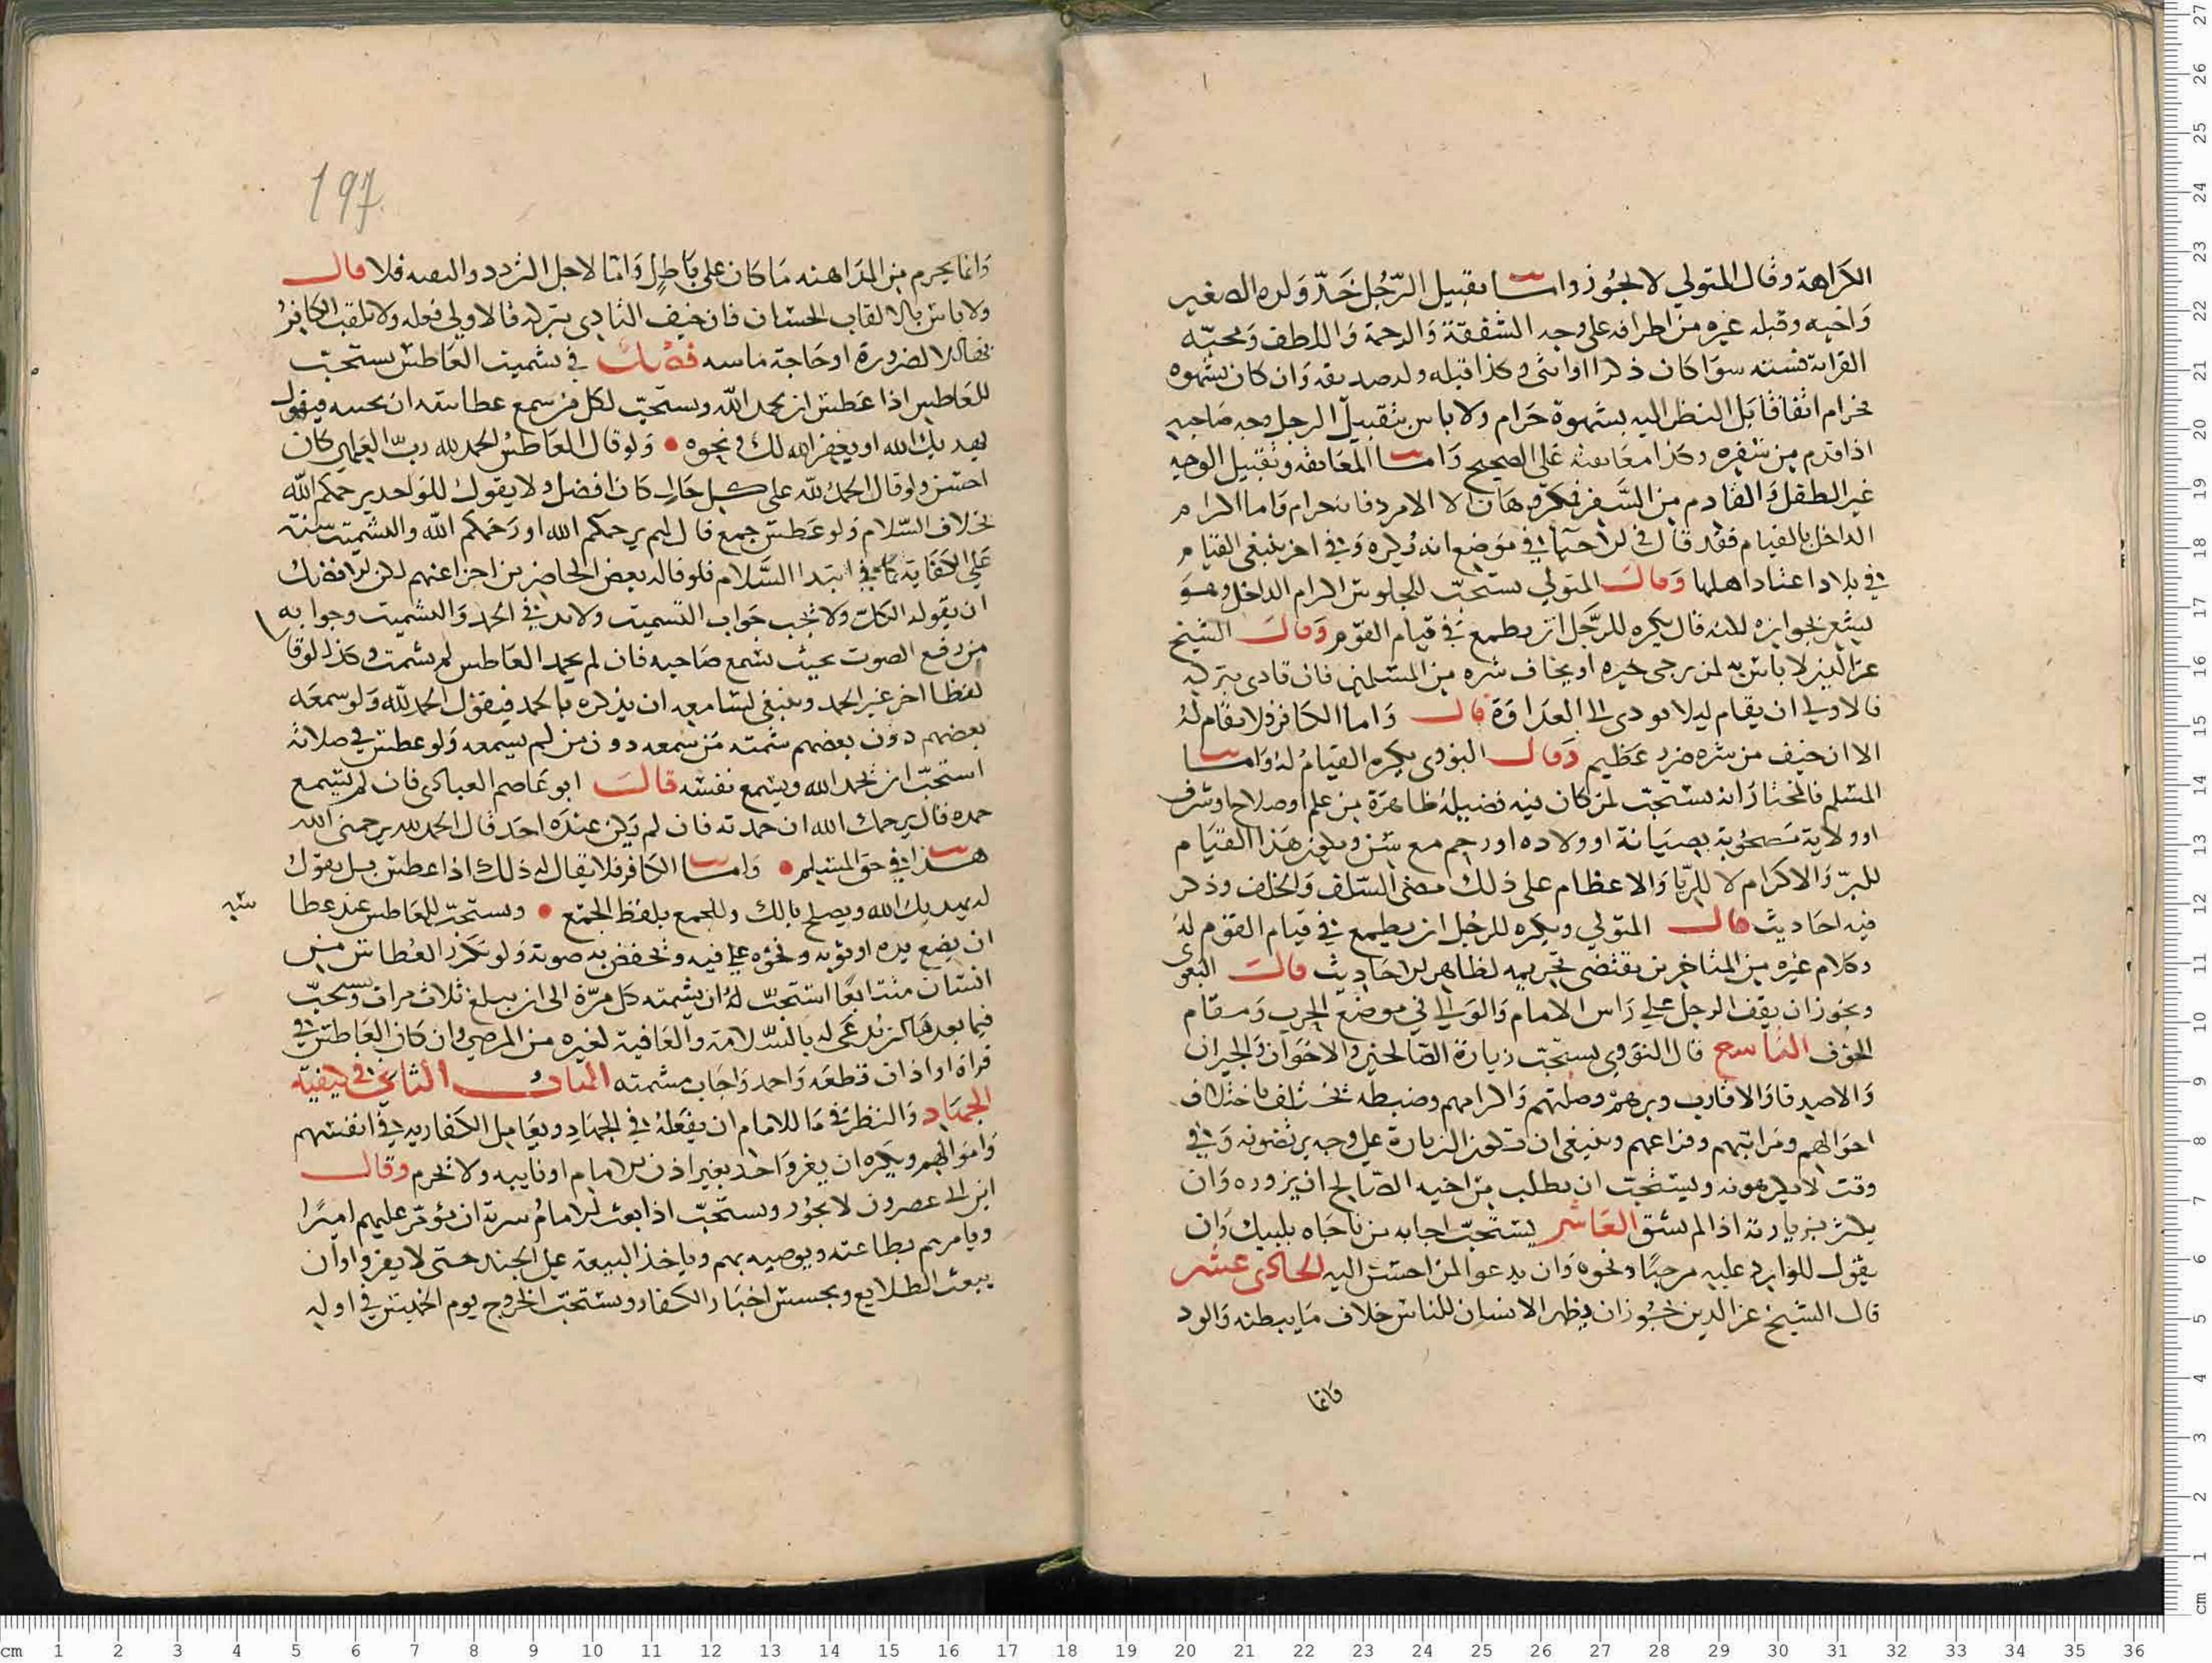 الكراهة وقال المتولي لا يجوز واما تقبيل الرجل خد ولده الصغير
واخيه وقبله غيره من اطرافه على وجه الشفقة والرحمة واللطف ومحبة
القرابة فسنة سوا كان ذكرا او انثى وكذا قبله ولد صديقه وان كان بشهوه
فحرام اتفاقا بل النظر اليه بشهوة حرام ولا باس بتقبيل الرجل وجه صاحبه
اذا قدم من سفره وكذا معانقته على الصحيح واما المعانقه وتقبيل الوجه
غير الطفل والقادم من السفر فمكروهان الا الامرد فانه حرام واما اكرام
الداخل بالقيام فقد قال في الاحيا في موضع انه يكره وفي اخر ينبغي القيام
في بلاد اعتاد اهلها وقال المتولي يستحب للجلوس اكرام الداخل وهو
يشعر بجوازه لكنه قال يكره للرجل ان يطمع في قيام القوم وقال الشيخ
عز الدين لا باس به لمن يرجى خيره او يخاف شره من المسلمين فان تادى بتركه
فالاولى ان يقام ليلا يودي الى العداوة قال واما الكافر فلا يقام له
الا ان خيف من شره ضرر عظيم وقال النووي يكره القيام له واما
المسلم فالمختار انه يستحب لمن كان فيه فضيله ظاهرة من علم او صلاح او شرف
او ولاية مصحوبة بصيانة او ولاده او رحم مع سن ويكون هذا القيام
للبر والاكرام لا للريا والاعظام على ذلك مضى السلف والخلف وذكر
فيه احاديث قال المتولي ويكره للرجل ان يطمع في قيام القوم له
وكلام غيره من المتاخرين يقتضي تحريمه لظاهر الاحاديث قال البغوى
ويجوز ان يقف الرجل على راس الامام والوالي في موضع الحرب ومقام
الخوف التاسع قال النووي يستحب زيارة الصالحين والاخوان والجيران
والاصدقا والاقارب وبرهم وصلتهم واكرامهم وضبطه تختلف باختلاف
احوالهم ومراتبهم وفراغهم وينبغي ان تكون الزيارة على وجه يرتضونه وفي
وقت لا يكرهونه ويستحب ان يطلب من اخيه الصالح ان يزوره وان
يكثر من زيارته اذا لم يشق العاشر يستحب اجابه من ناداه بلبيك وان
يقول للوارد عليه مرحبا ونحوه وان يدعو لمن احسن اليه الحادى عشر
قال الشيخ عز الدين يجوز ان يظهر الانسان للناس خلاف ما يبطنه والود
وانما
197
وانما يحرم من المداهنه ما كان على باطل واما لاجل التردد فلا قال
ولا باس بالالقاب الحسان فان خيف التاذي بتركه فالاولى فعله ولا تلقب الكافر
بها الا لضرورة او حاجة ماسه فصل في تشميت العاطس يستحب
للعاطس اذا عطس ان يحمد الله ويستحب لكل من سمع عطاسه ان يجيبه فيقول
يهديك الله او يغفر الله لك ونحوه ولو قال العاطس الحمد لله رب العالمين كان
احسن ولو قال الحمد لله على كل حال كان افضل ولا يقول للواحد يرحمكم الله
بخلاف السلام ولو عطس جمع قال لهم يرحمكم الله او رحمكم الله والتشميت سنة
على الكفاية كما في ابتدا السلام فلو قاله بعض الحاضرين اجزا عنهم لكن الافضل
ان يقوله الكل ولا تجب جواب التشميت ولا بد في الحمد والتشميت وجوابه
من رفع الصوت بحيث يسمع صاحبه فان لم يحمد العاطس لم يشمت وكذا لو قا
لفظا اخر غير الحمد وينبغي لسامعه ان يذكره بالحمد فيقول الحمد لله ولو سمعه
بعضهم دون بعضهم شمته من سمعه دون من لم يسمعه ولو عطس في صلاته
استحب ان يحمد الله ويسمع نفسه قال ابو عاصم العبادى فان لم يسمع
حمده قال يرحمك الله ان حمدته فان لم يكن عنده احد قال الحمد لله يرحمني الله
هذا في حق المسلم واما الكافر فلا يقال له ذلك اذا عطس بل يقول
له يهديك الله ويصلح بالك وللجمع بلفظ الجمع ويستحب للعاطس عند عطا
سه
ان يضع يده او ثوبه ونحوه على فيه ويخفض به صوته ولو تكرر العطاس من
انسان متتابعا استحب له ان يشمته كل مرة الى ان يبلغ ثلاث مرات ويستحب
فيما بعدها ان يدعى له بالسلامة والعافية لغيره من المرضى وان كان العاطس في
قراة او اذان قطعه واحمد واجاب مشمته الباب الثاني في كيفية
الجهاد والنظر في ما للامام ان يفعله في الجهاد ويعامل الكفار به في انفسهم
واموالهم ويكره ان يغزو احد بغير اذن الامام او نايبه ولا تحرم وقال
ابن ابي عصرون لا يجوز ويستحب اذا بعث الامام سرية ان يؤمر عليهم اميرا
ويامرهم بطاعته ويوصيه بهم وياخذ البيعة على الجند حتى لا يفروا وان
يبعث الطلايع ويجسس اخبار الكفار ويستحب الخروج يوم الخميس في اوله